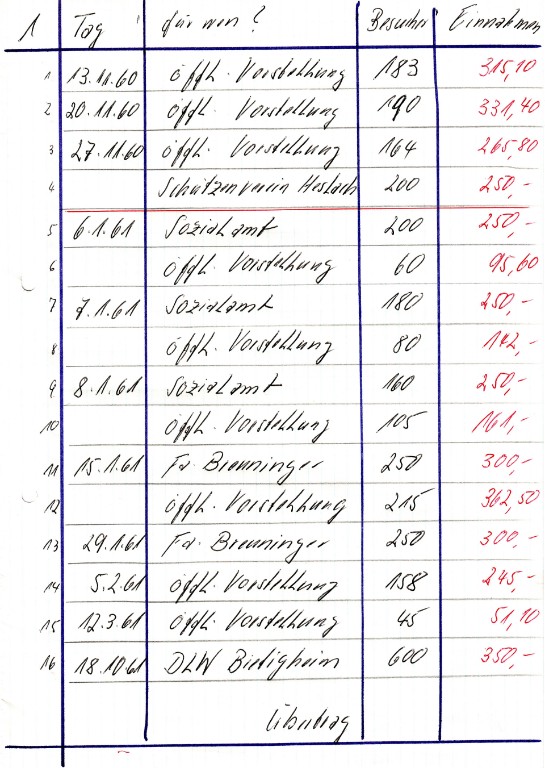 1 Tag für wen? Besucher Einnahmen
1 13.11.60 öffh. Vorstellung 183 315,10
2 20.11.60 öffh. Vorstellung 190 331,40
3 27.11.60 öffh. Vorstellung 164 265,80
4 Schützenverein Heslach 200 250,-
5 6.1.61 Sozialamt 200 250,-
6 öffh. Vorstellung 60 95,60
7 7.1.61 Sozialamt 180 250,-
8 öffh. Vorstellung 80 142,-
9 8.1.61 Sozialamt 160 250,-
10 öffh. Vorstellung 105 161,-
11 15.1.61 Fa. Breuninger 250 300,-
12 öffh. Vorstellung 215 362,50
13 29.1.61 Fa. Breuninger 250 300,-
14 5.2.61 öffh. Vorstellung 158 245,-
15 12.3.61 öffh. Vorstellung 45 51,10
16 18.10.61 DLW Bietigheim 600 350,-
Übertrag